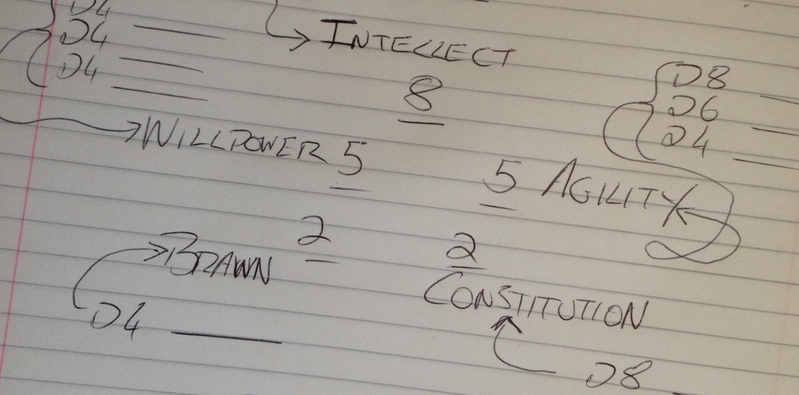 D4
D4
D4
INTELLECT
8
D8
D6
D4
WILLPOWER 5
5 AGILITY
BRAWN 2
2
CONSTITUTION
D4
D8